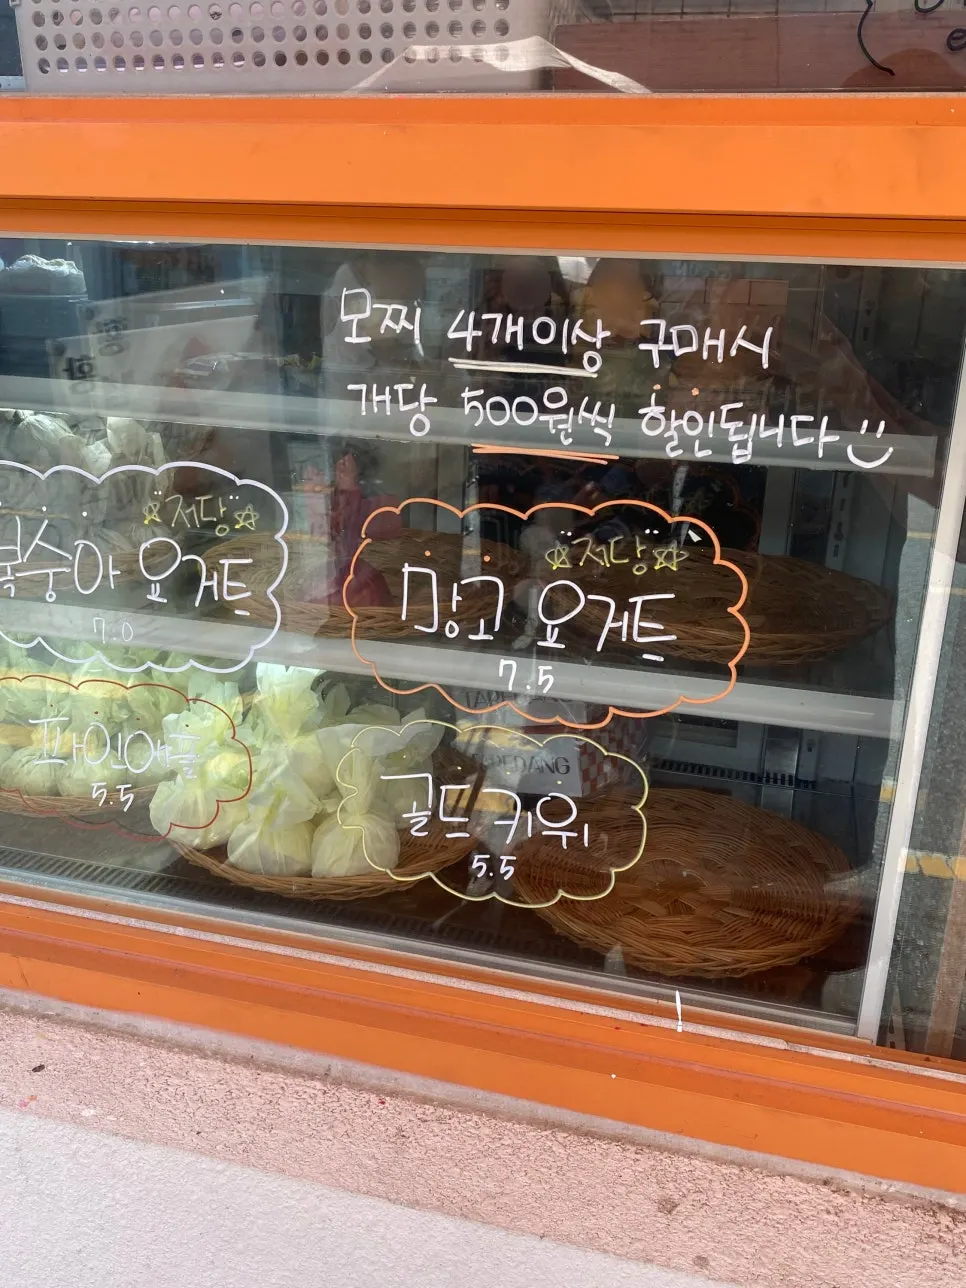 모찌 4개이상 구매시
개당 500원씩 할인됩니다
저당
복숭아 요거트
7.0
저당
망고 요거트
7.5
파인애플
5.5
골드 키위
5.5